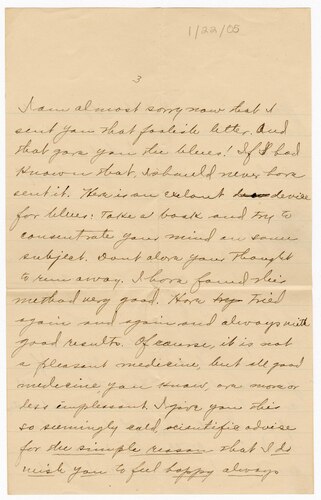 1/22/05
3
I am almost sorry now that I
sent you that foolish letter. And
that gave you the blues! If I had
known that, I should never have
sent it. Here is an exelant devise
for blues: Take a book and try to
consentrate your mind on some
subject. Dont alow your thought
to run away. I have found this
method very good. Have try tried
again and again and always with
good results. Of course, it is not
a pleasant medicine, but all good
medicine you know, are more or
less impleasant. I give you this
so seemingly cold, scientific advise
for the simple reason that I do
wish you to feel happy always